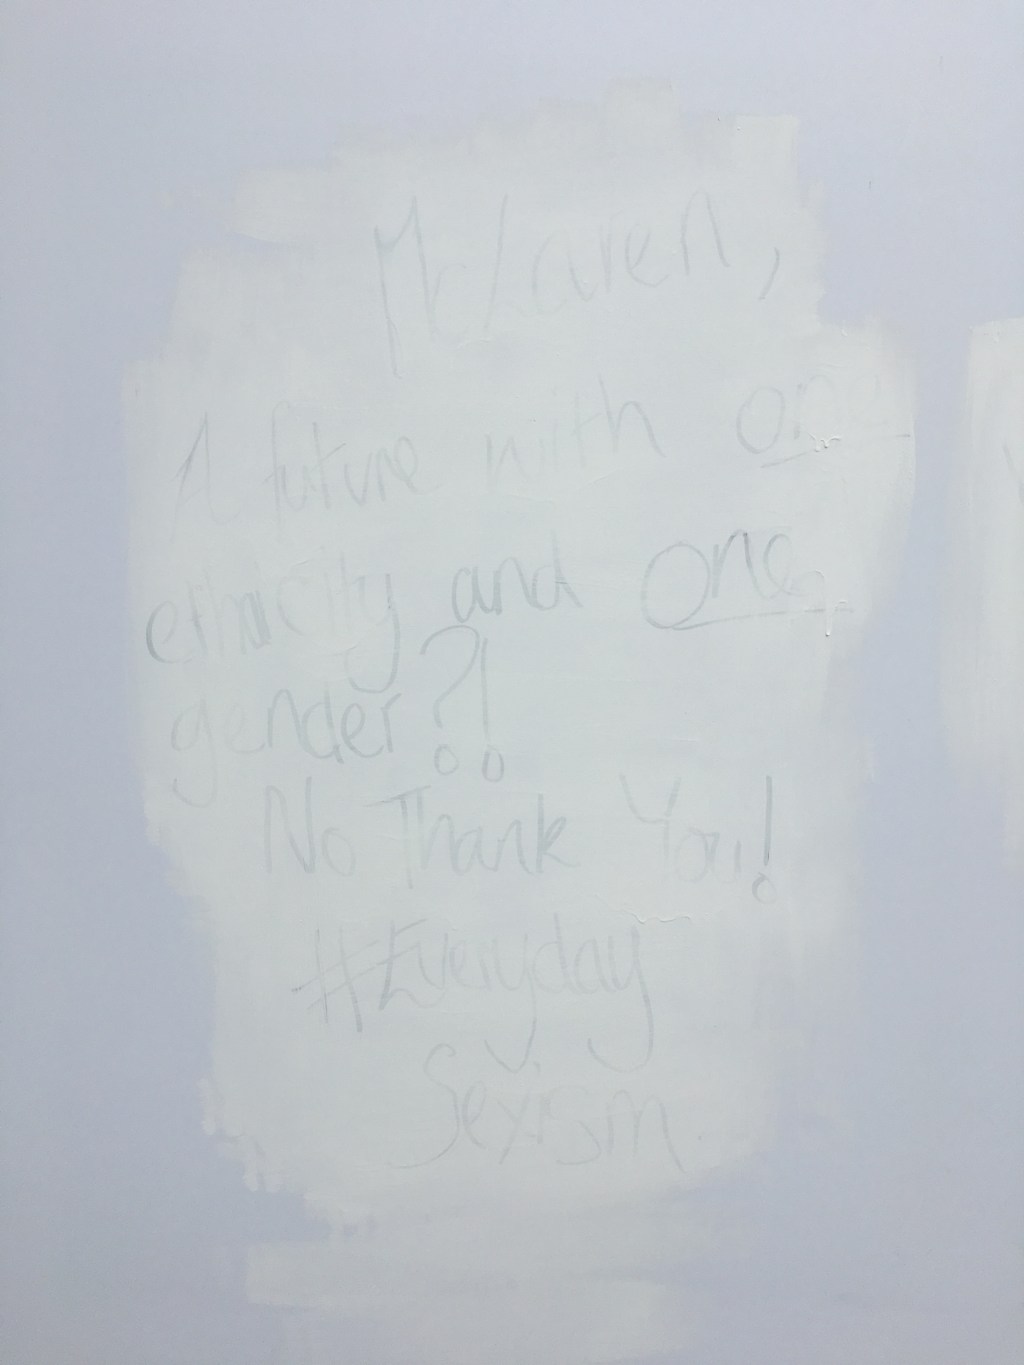 McLaren,
A future with one
ethnicity and one
gender?!
No Thank You!
#Everyday
Sexism